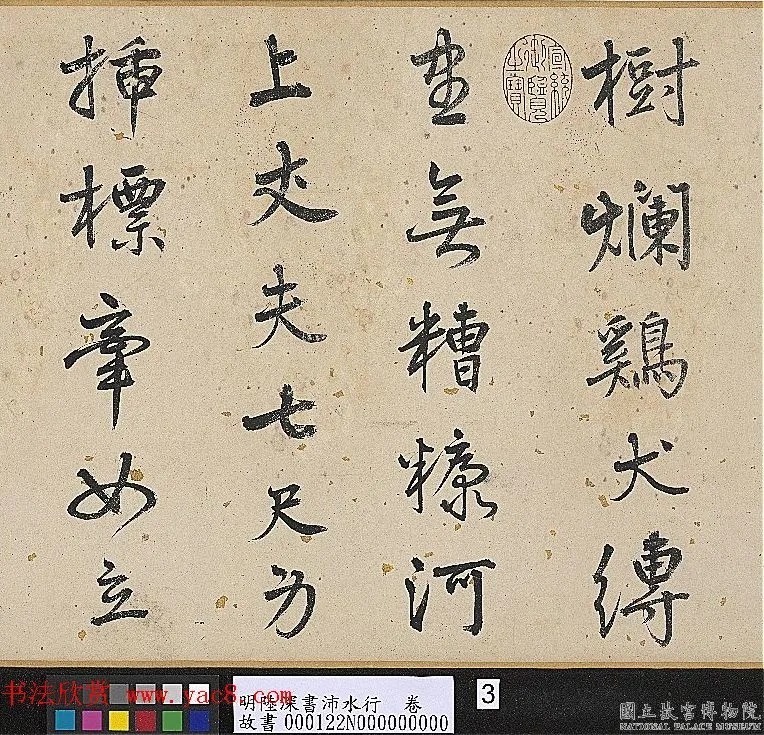 樹爛鷄犬縛
宣統御覽之寶
無糟糠河
上丈夫七尺身
插標牽女立
书法欣赏 www.yac8.com
明陸深書沛水行 卷
故書 000122N000000000
3
國立故宮博物院
NATIONAL PALACE MUSEUM